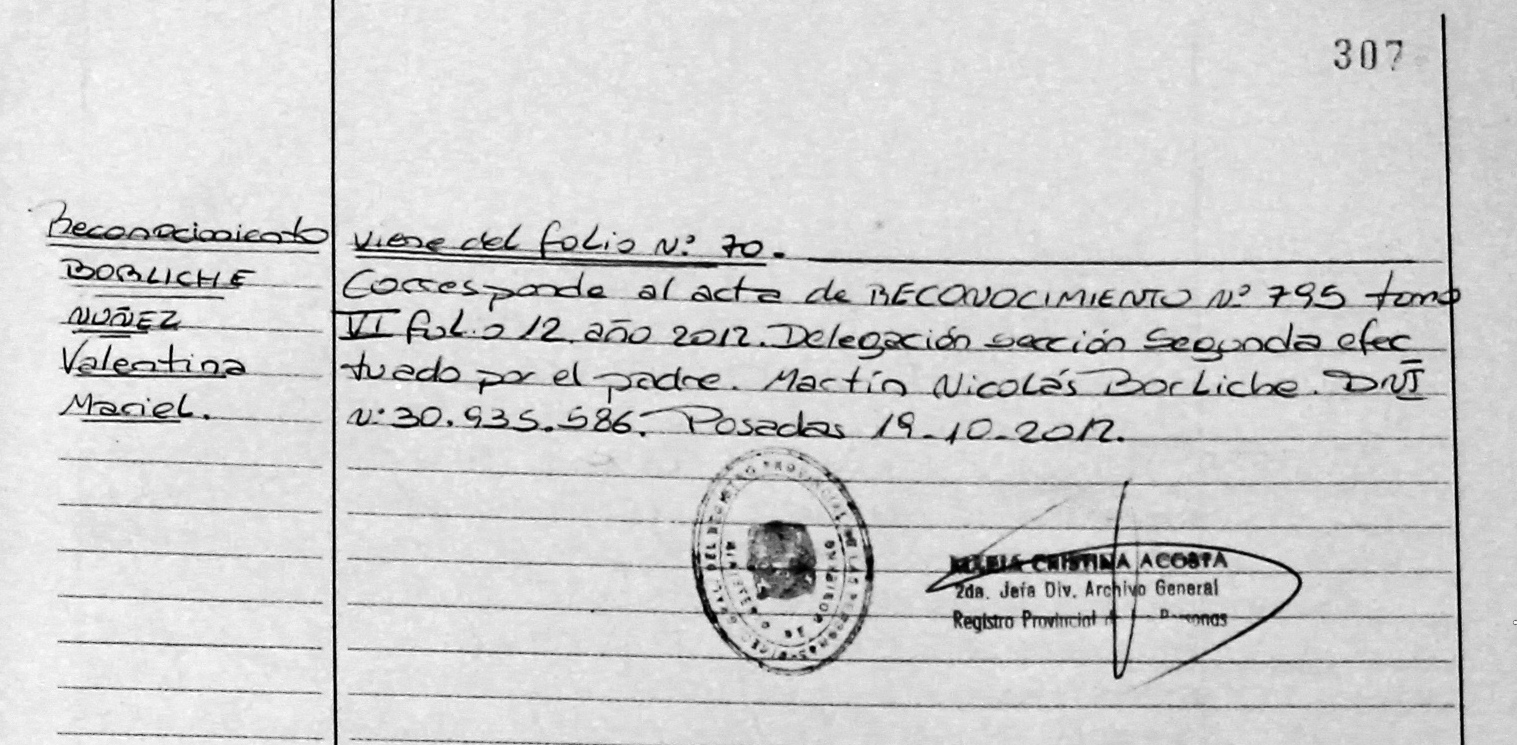 307
Reconocimiento
BORLICHE
NUÑEZ
Valentina
Mariel.
Viene del folio N.° 70.
Corresponde al acta de RECONOCIMIENTO N° 795 tomo
VI folio 12. año 2012. Delegación sección Segunda efec
tuado por el padre. Martín Nicolás Borliche. DNI
N.° 30.935.586. Posadas 19-10-2012.
MARIA CRISTINA ACOSTA
2da. Jefa Div. Archivo General
Registro Provincial Personas